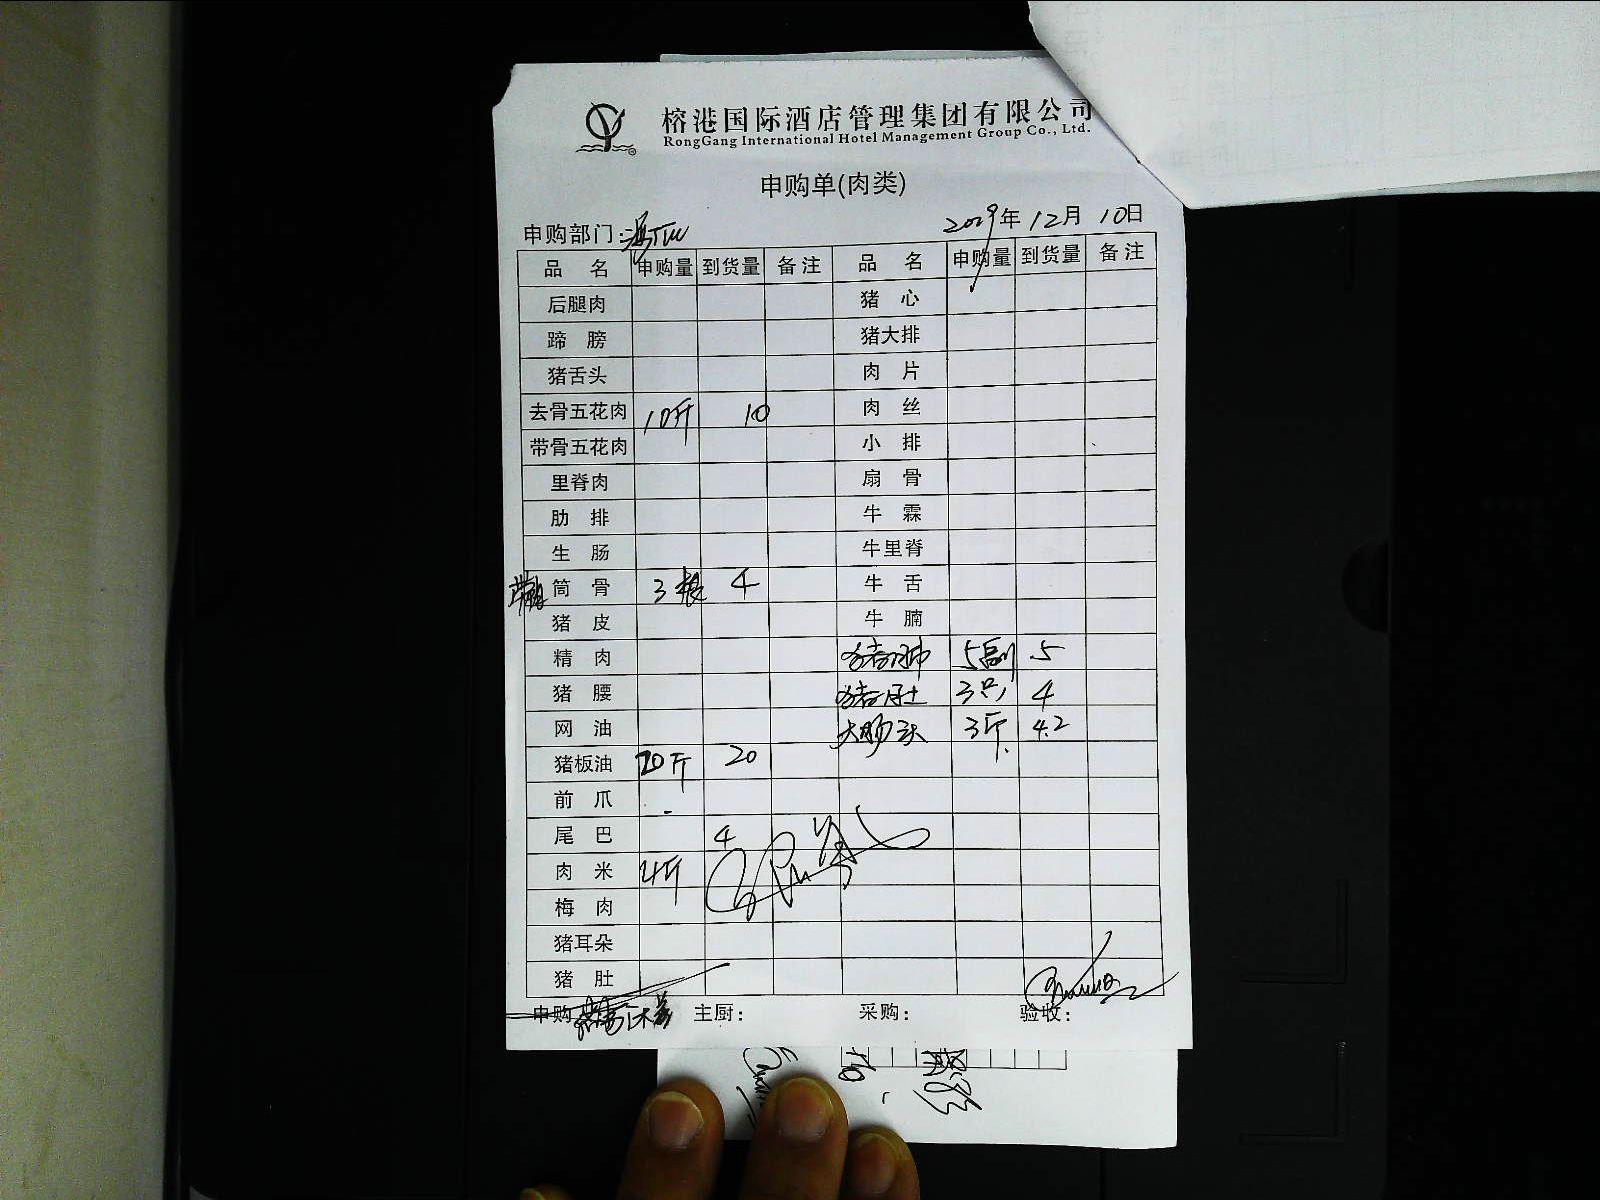 榕港国际酒店管理集团有限公司
RongGang International Hotel Management Group Co., Ltd.
申购单(肉类)
申购部门:
2019年12月10日
品 名 申购量 到货量 备注 品 名 申购量 到货量 备注
后腿肉 猪 心
蹄 膀 猪大排
猪舌头 肉 片
去骨五花肉 10斤 10 肉 丝
带骨五花肉 小 排
里脊肉 扇 骨
肋 排 牛 霖
生 肠 牛里脊
筒 骨 3根 4 牛 舌
猪 皮 牛 腩
精 肉 猪肺 5副 5
猪 腰 猪肚 3只 4
网 油 大肠头 3斤 4.2
猪板油 20斤 20
前 爪
尾 巴 4
肉 米 4斤
梅 肉
猪耳朵
猪 肚
申购 主厨: 采购: 验收: